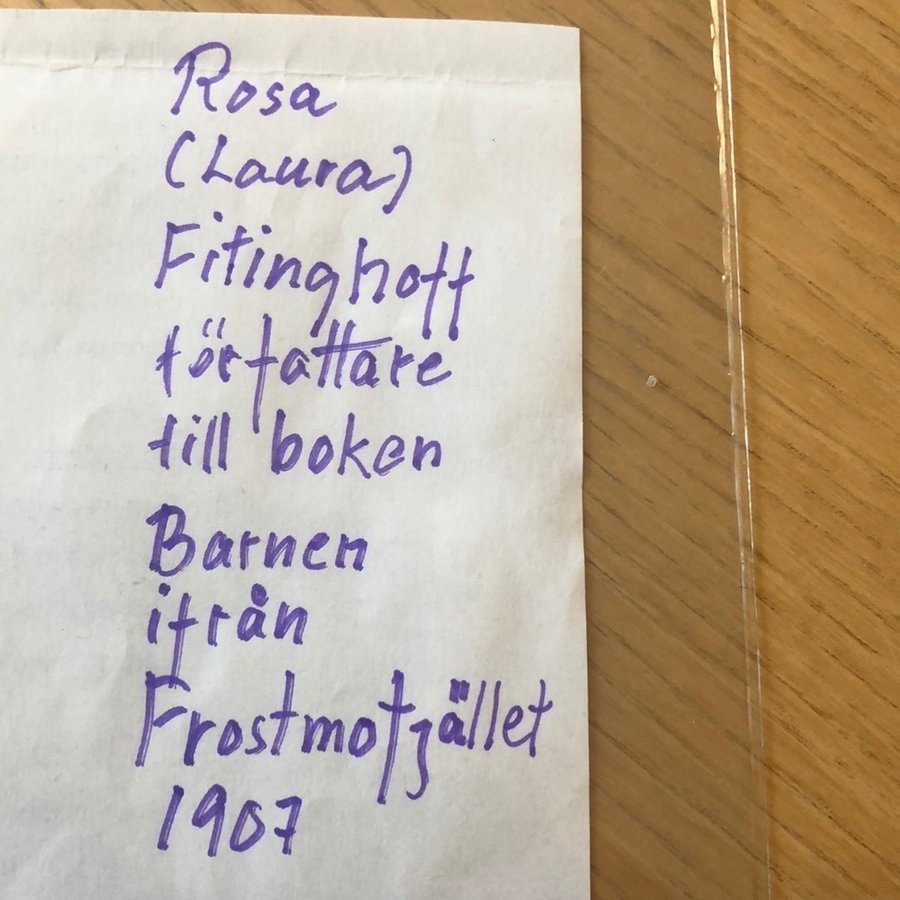 Rosa
(Laura)
Fitinghoff
författare
till boken
Barnen
ifrån
Frostmofjället
1907